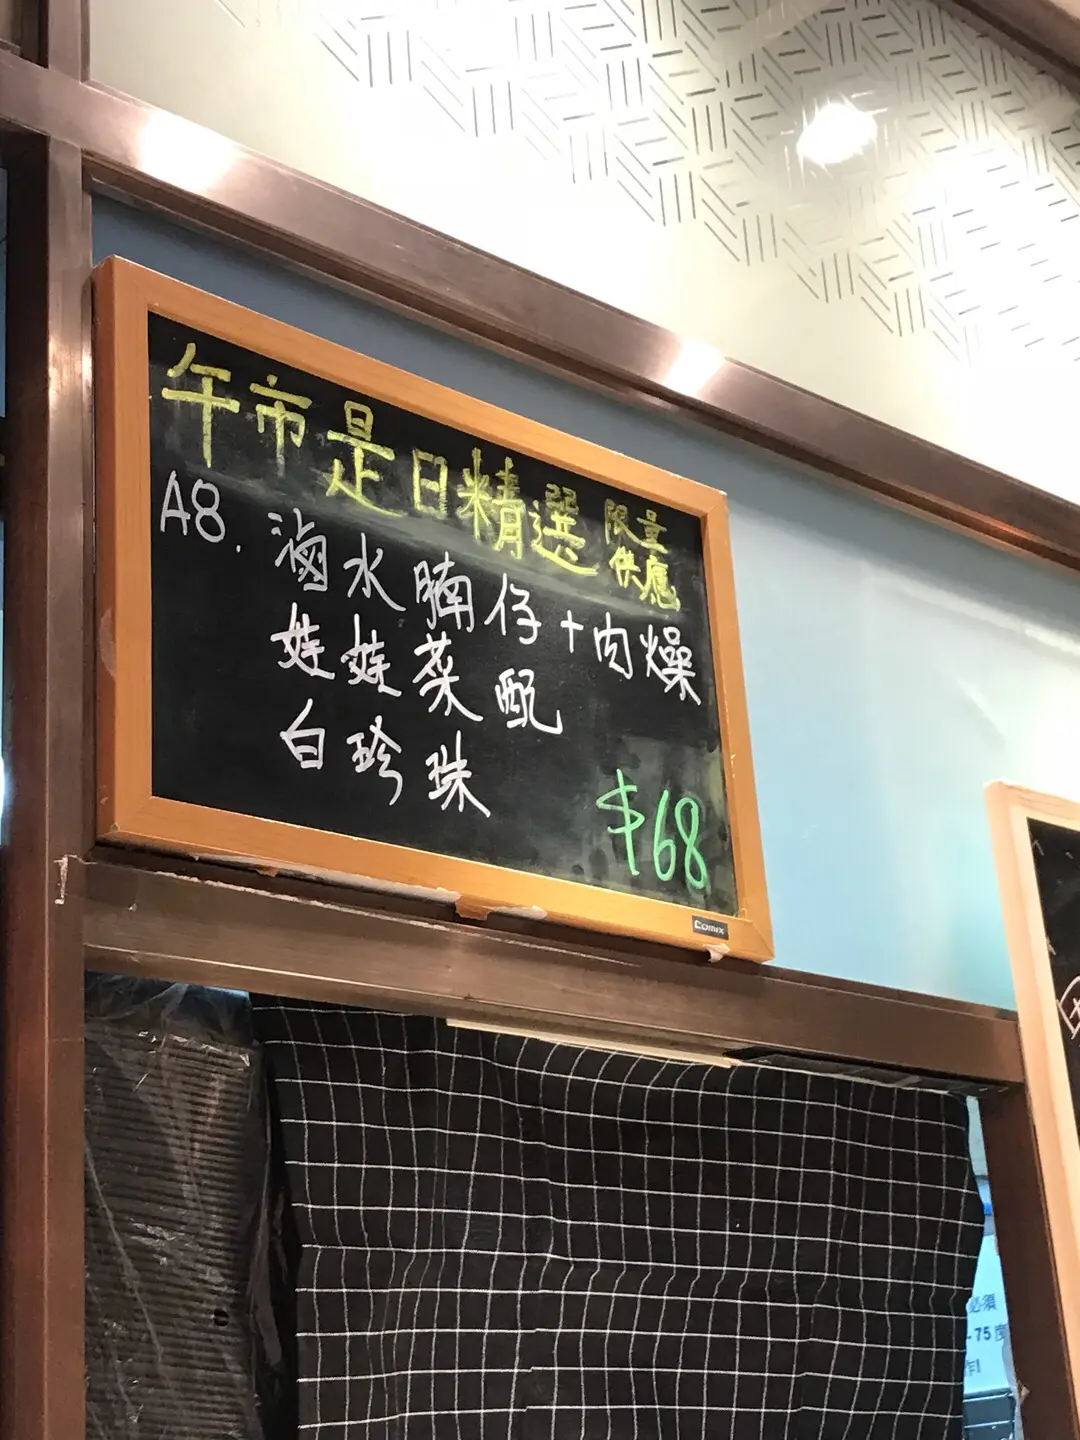 午市是日精選 限量供應
A8. 滷水腩仔+肉燥
娃娃菜配
白珍珠
$68
Comix
必須
-75度
作!